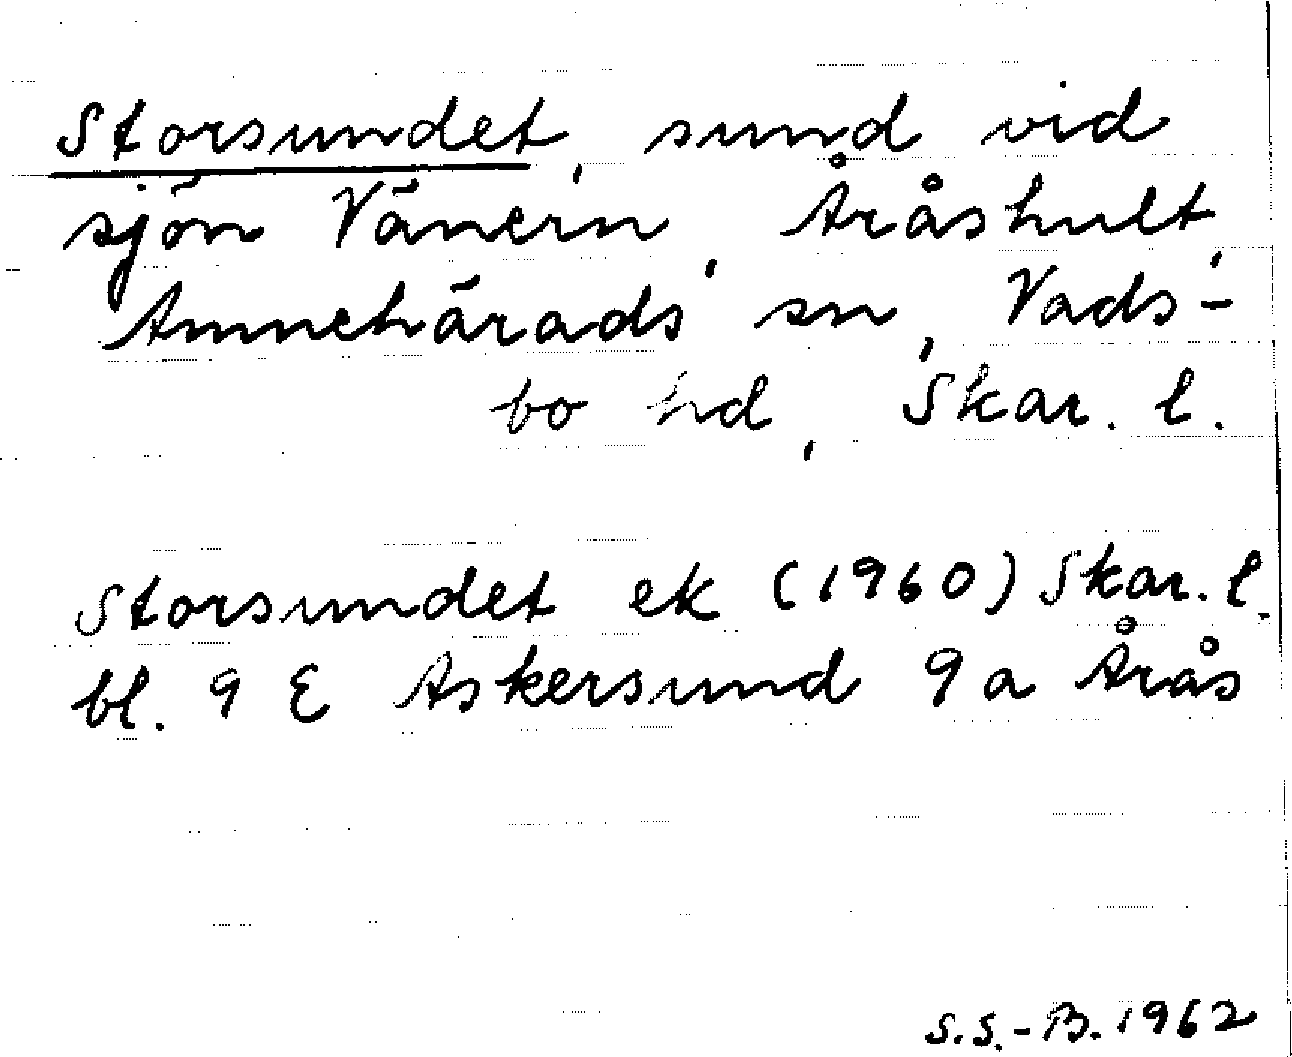 Storsundet, sund vid
sjön Vänern, Åråshult,
Amnehärads sn, Vads-
bo hd, Skar. l.
Storsundet ek (1960) Skar. l.
bl. 9 E Askersund 9 a Årås
S.S.-B. 1962